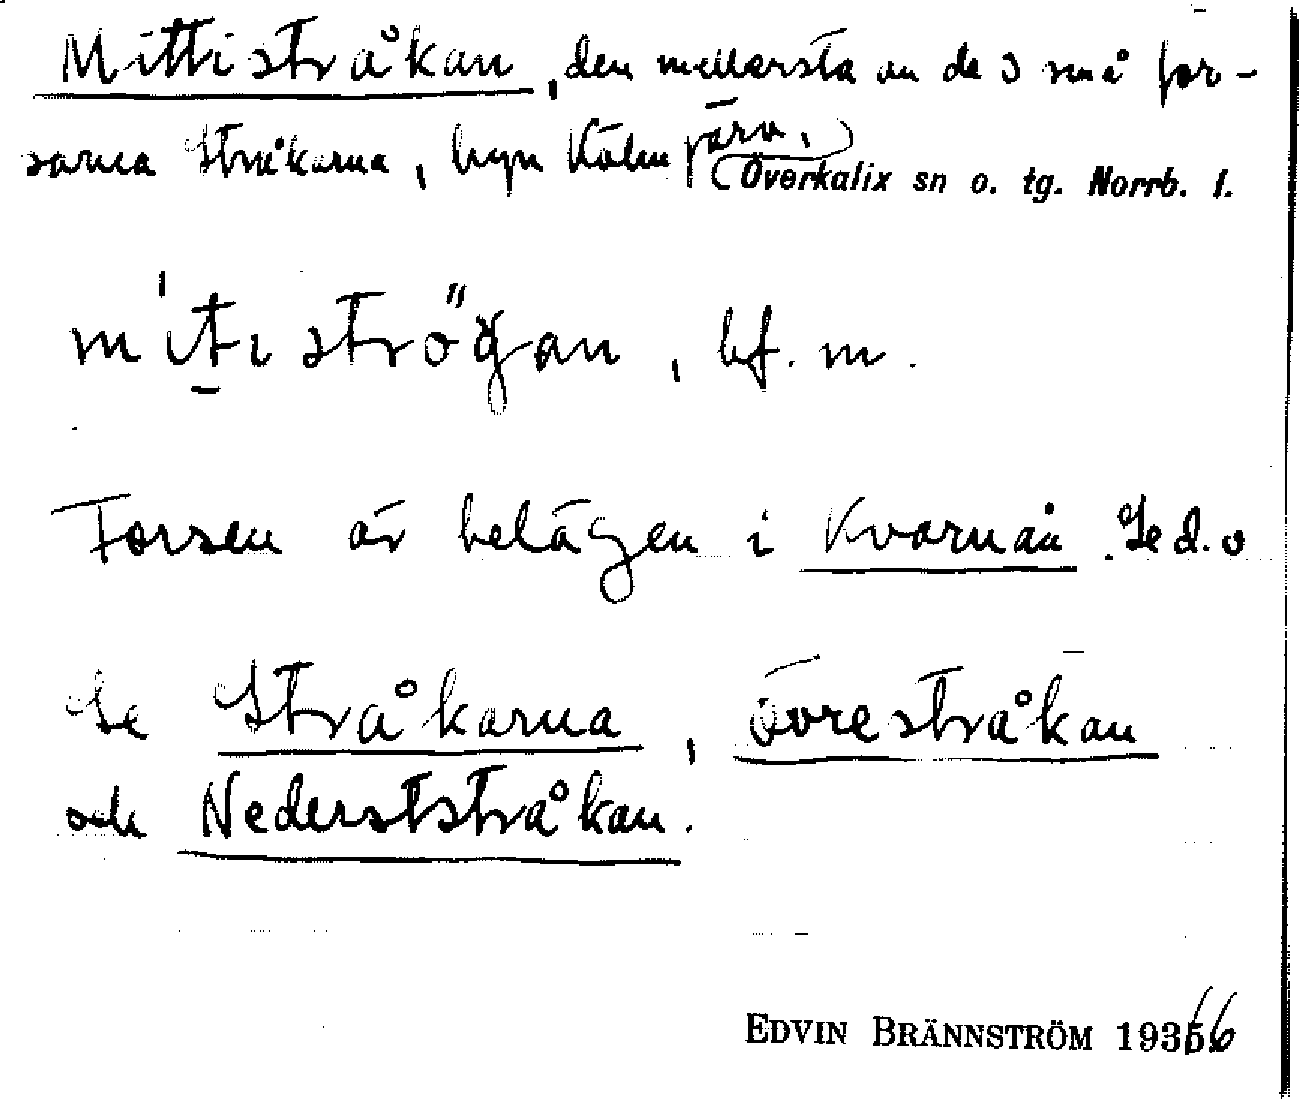 Mittistråkan, den mellersta av de 3 små for-
sarna Stråkarna, byn Kölmjärv,
Överkalix sn o. tg. Norrb. l.
mìtiströgan, bf. m.
Forsen är belägen i Kvarnån. Se d.o
Se Stråkarna, övrestråkan
och Nederststråkan.
EDVIN BRÄNNSTRÖM 1936